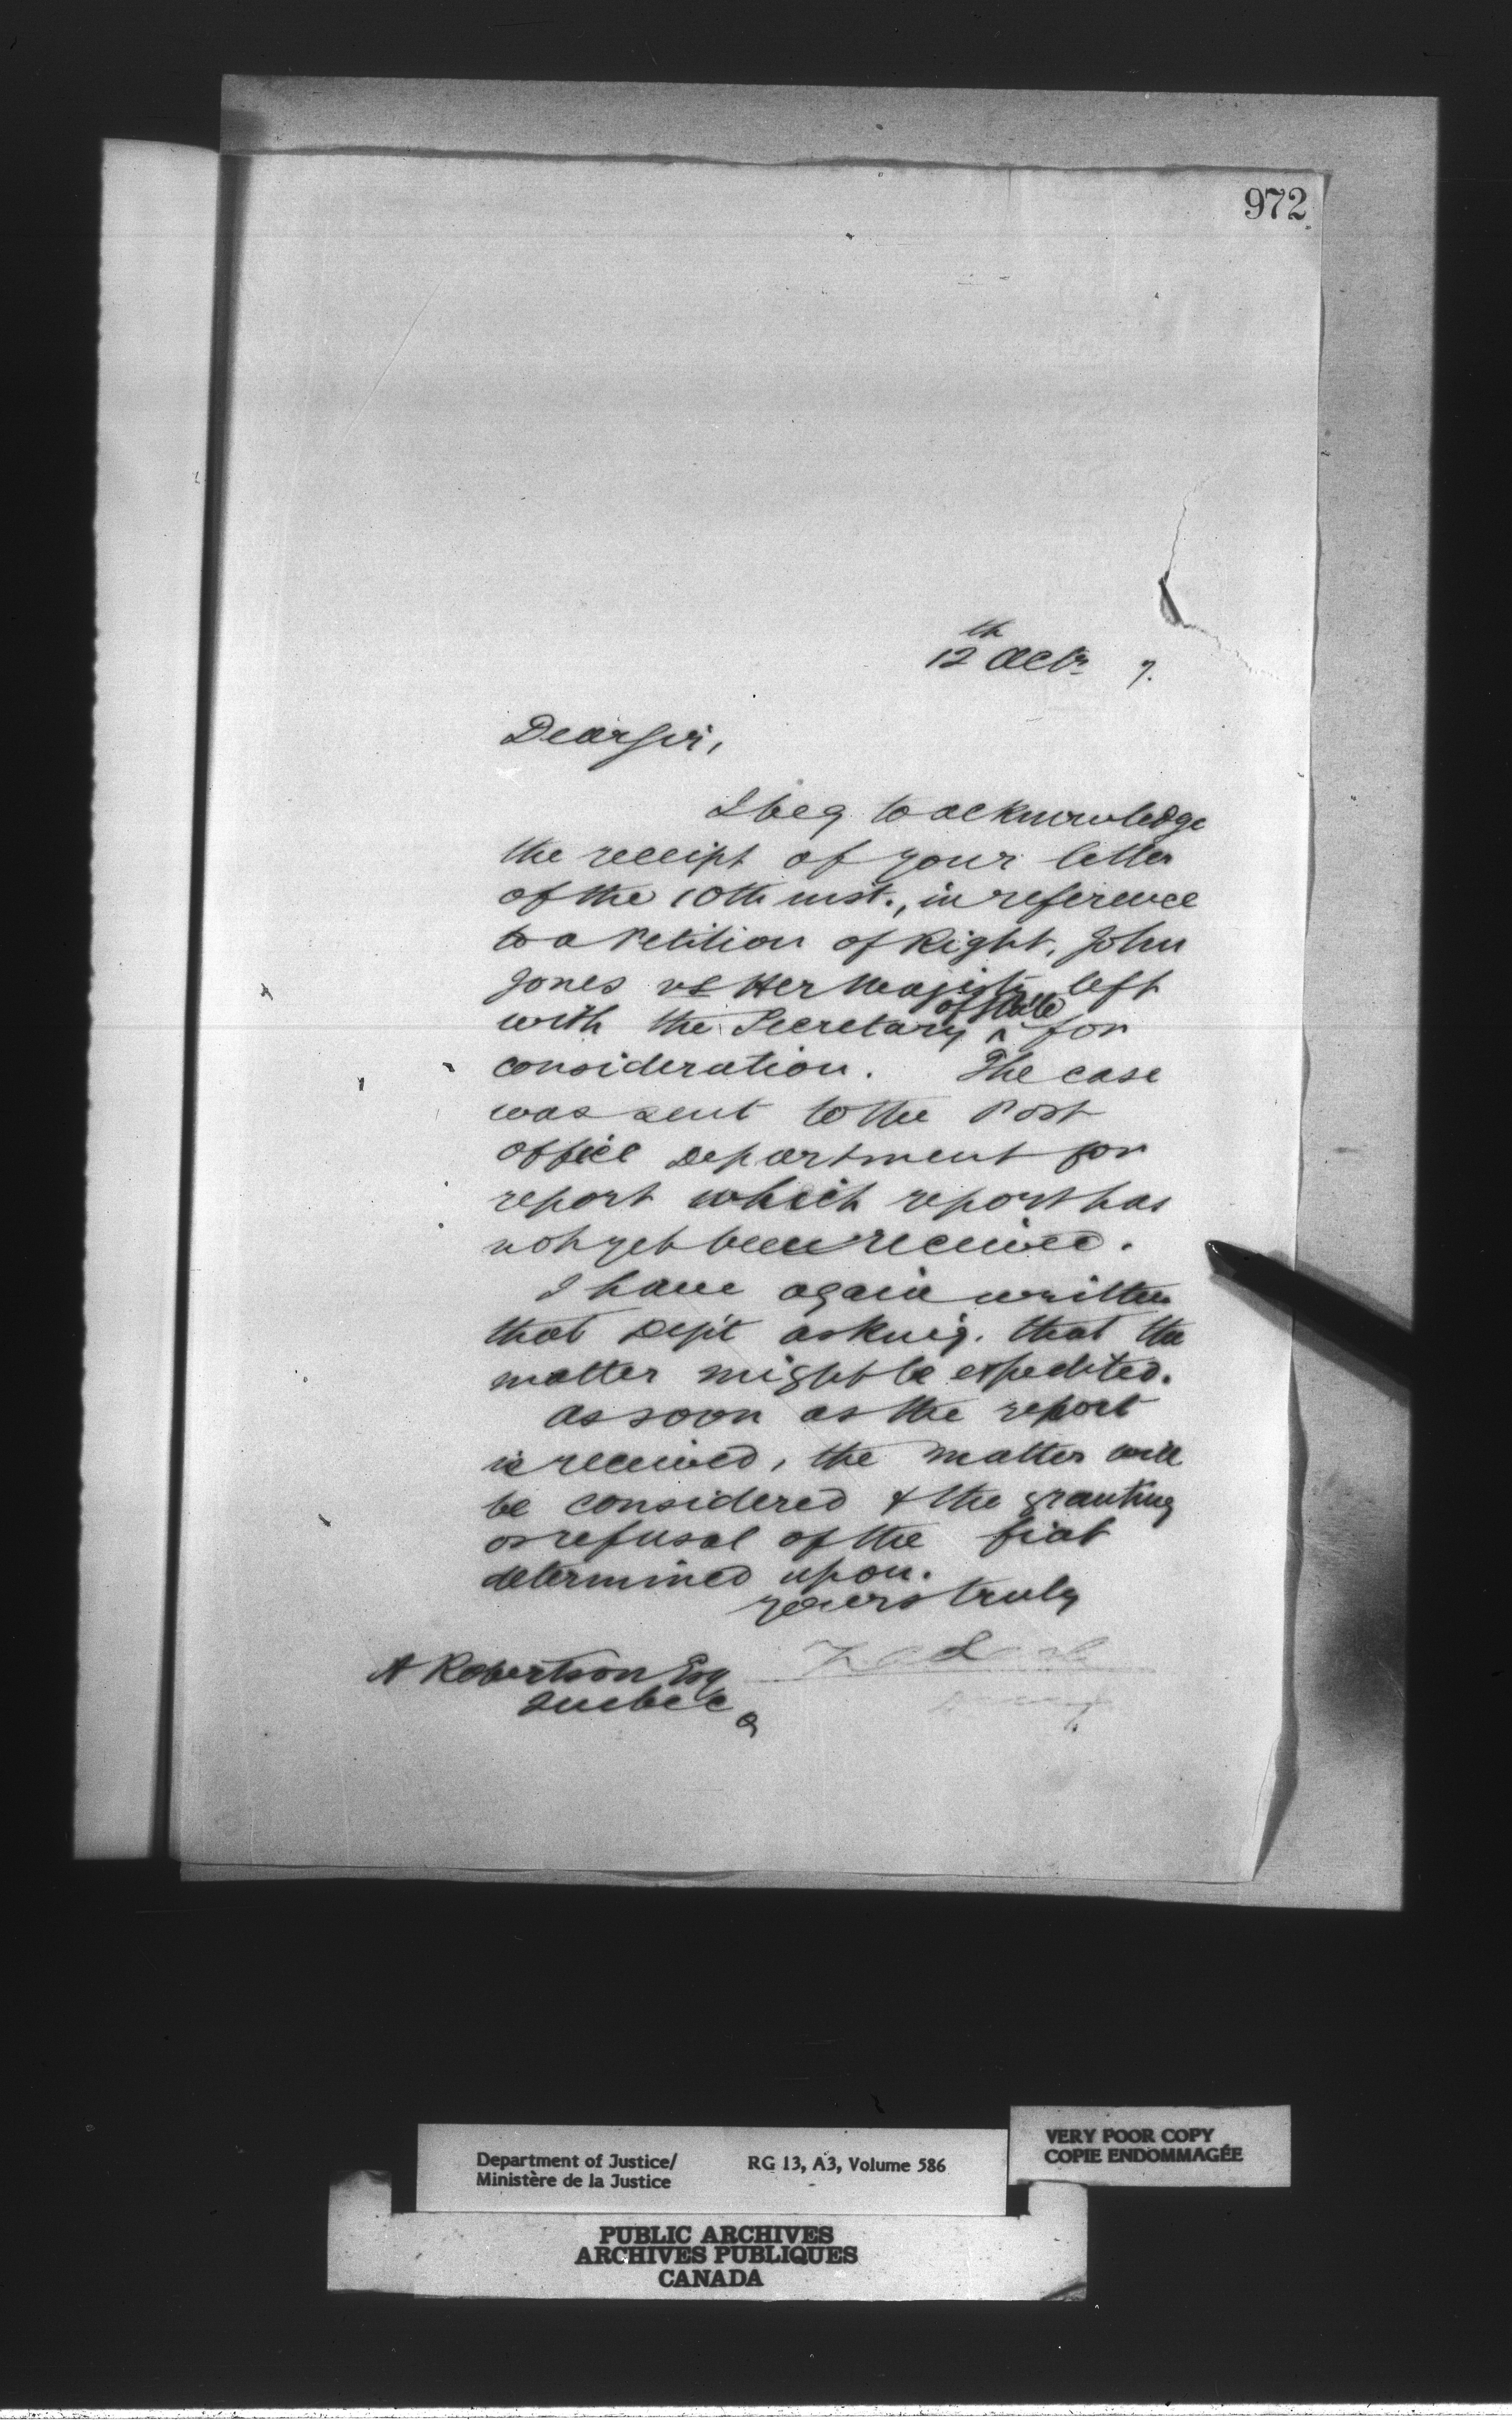 972
12th Octr 7.
Dear Sir,
I beg to acknowledge
the receipt of your letter
of the 10th inst., in reference
to a Petition of Right, John
Jones vs Her Majesty left
with the Secretary ^ of State for
consideration. The case
was sent to the Post
Office Department for
report which report has
not yet been received.
I have again written
that Dep't asking that the
matter might be expedited.
As soon as the report
is received, the matter will
be considered & the granting
or refusal of the fiat
determined upon.
Yours truly
A Robertson Esq
Quebec
Q
Department of Justice/
Ministère de la Justice
RG 13, A3, Volume 586
VERY POOR COPY
COPIE ENDOMMAGÉE
PUBLIC ARCHIVES
ARCHIVES PUBLIQUES
CANADA